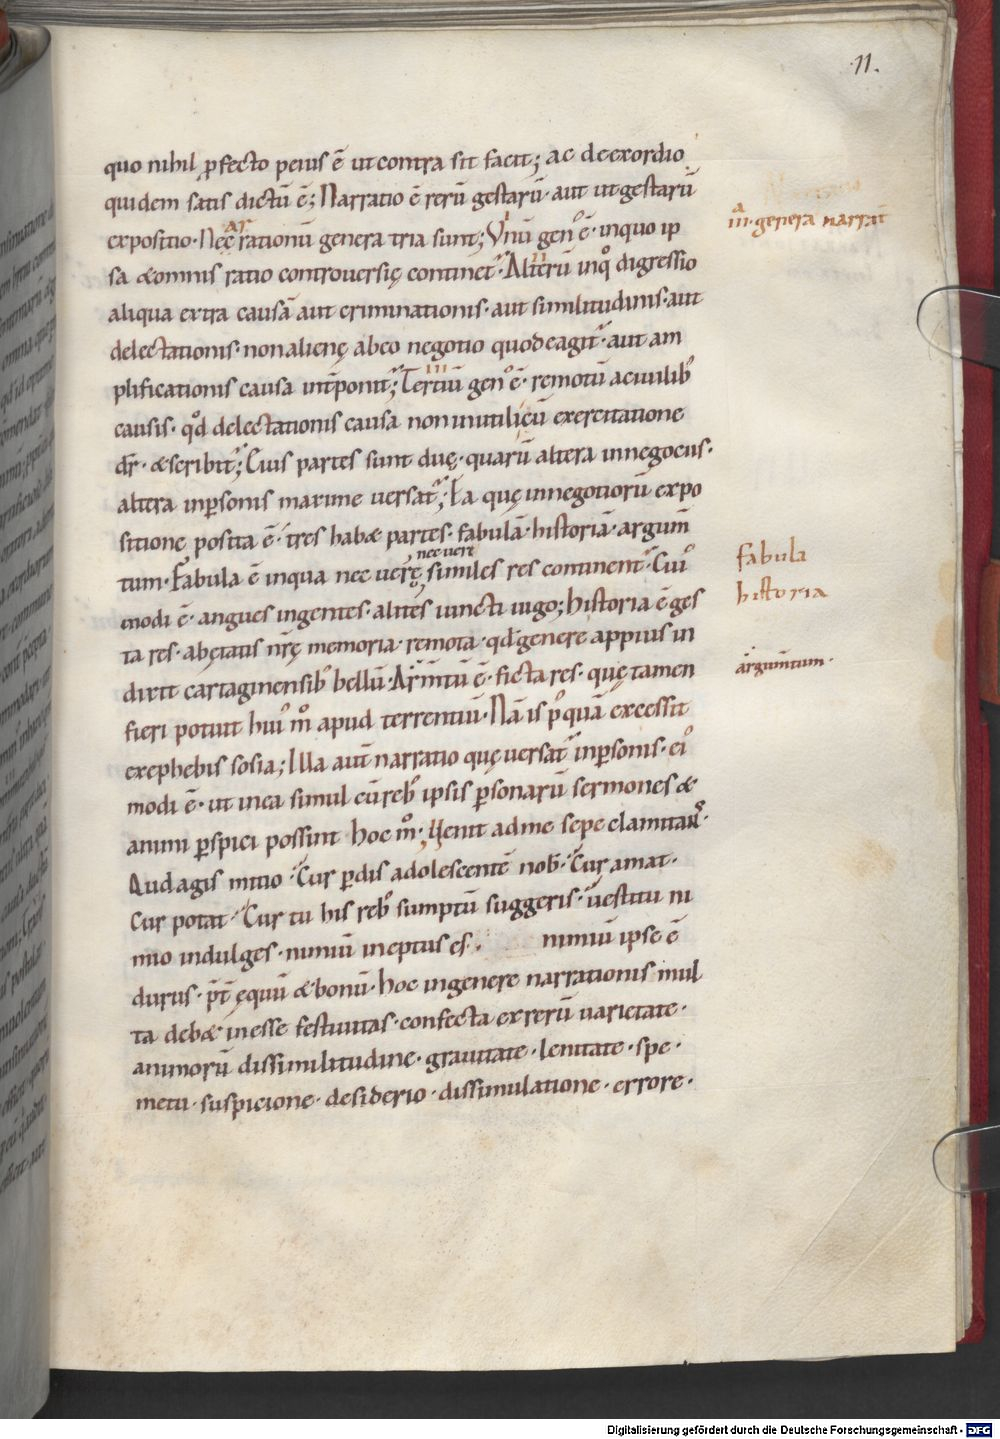 .11.
quo nihil pfecto peius ē ut contra sit facit; ac de exordio
quidem satis dictū ē; Narratio ē rerū gestarū · aut ut gestarū
expositio · Nec rationū genera tria sunt; Vnū genꝰ ē · in quo ip
sa & omnis ratio controversię continet᷑ · Alterū in qͦ digressio
aliqua extra causā aut criminationis · aut similitudinis · aut
delectationis · non alienę ab eo negotio quo de agit᷑ · aut am
plificationis causa int̄ponit᷑; Tertiū genꝰ ē · remotū a civilibꝰ
causis · qd̄ delectationis causa non inutili cū exercitatione
dr̄ · & scribit᷑; Cuius partes sunt duę · quarū altera in negociis ·
altera in p̲sonis maxime versat᷑; Ea quę in negotiorū expo
sitione posita ē · tres hab& partes · fabulā · historiā · argum̄
nec vere
tum · Fabula ē in qua nec verę similes res continent᷑ · Cuiꝰ
modi ē · angues ingentes · alites iuncti iugo; historia ē ges
ta res · ab ętatis nr̄ę memoria · remota · qd̄ genere appius in
dixit cartaginensibꝰ bellū · Arm̄tū ē · ficta res · quę tamen
fieri potuit huiꝰ mͦ apud terrentiū · Nā is pꝰquā excessit
ex ephebis sosia; Illa aut̄ narratio quę versat᷑ in p̲sonis · eiꝰ
modi ē · ut in ea simul cū rebꝰ ipsis p̲sonarū sermones &
animi p̲spici possint hoc mͦ; Uenit ad me sepe clamitans ·
Quid agis mitio · Cur p̲dis adolescentē nob̄ · Cur amat ·
Cur potat · Cur tu his rebꝰ sumptū suggeris · vestitu ni
mio indulges · nimiū ineptus es · nimiū ipse ē
durus · pr̄t̄ ęquū & bonū · hoc in genere narrationis mul
ta deb& inesse festivitas · confecta ex rerū varietate ·
animorū dissimilitudine · gravitate · lenitate · spe ·
metu · suspicione · desiderio · dissimulatione · errore ·
iii · genera narrat̄
fabula
historia
argum̄tum ·
Digitalisierung gefördert durch die Deutsche Forschungsgemeinschaft - DFG